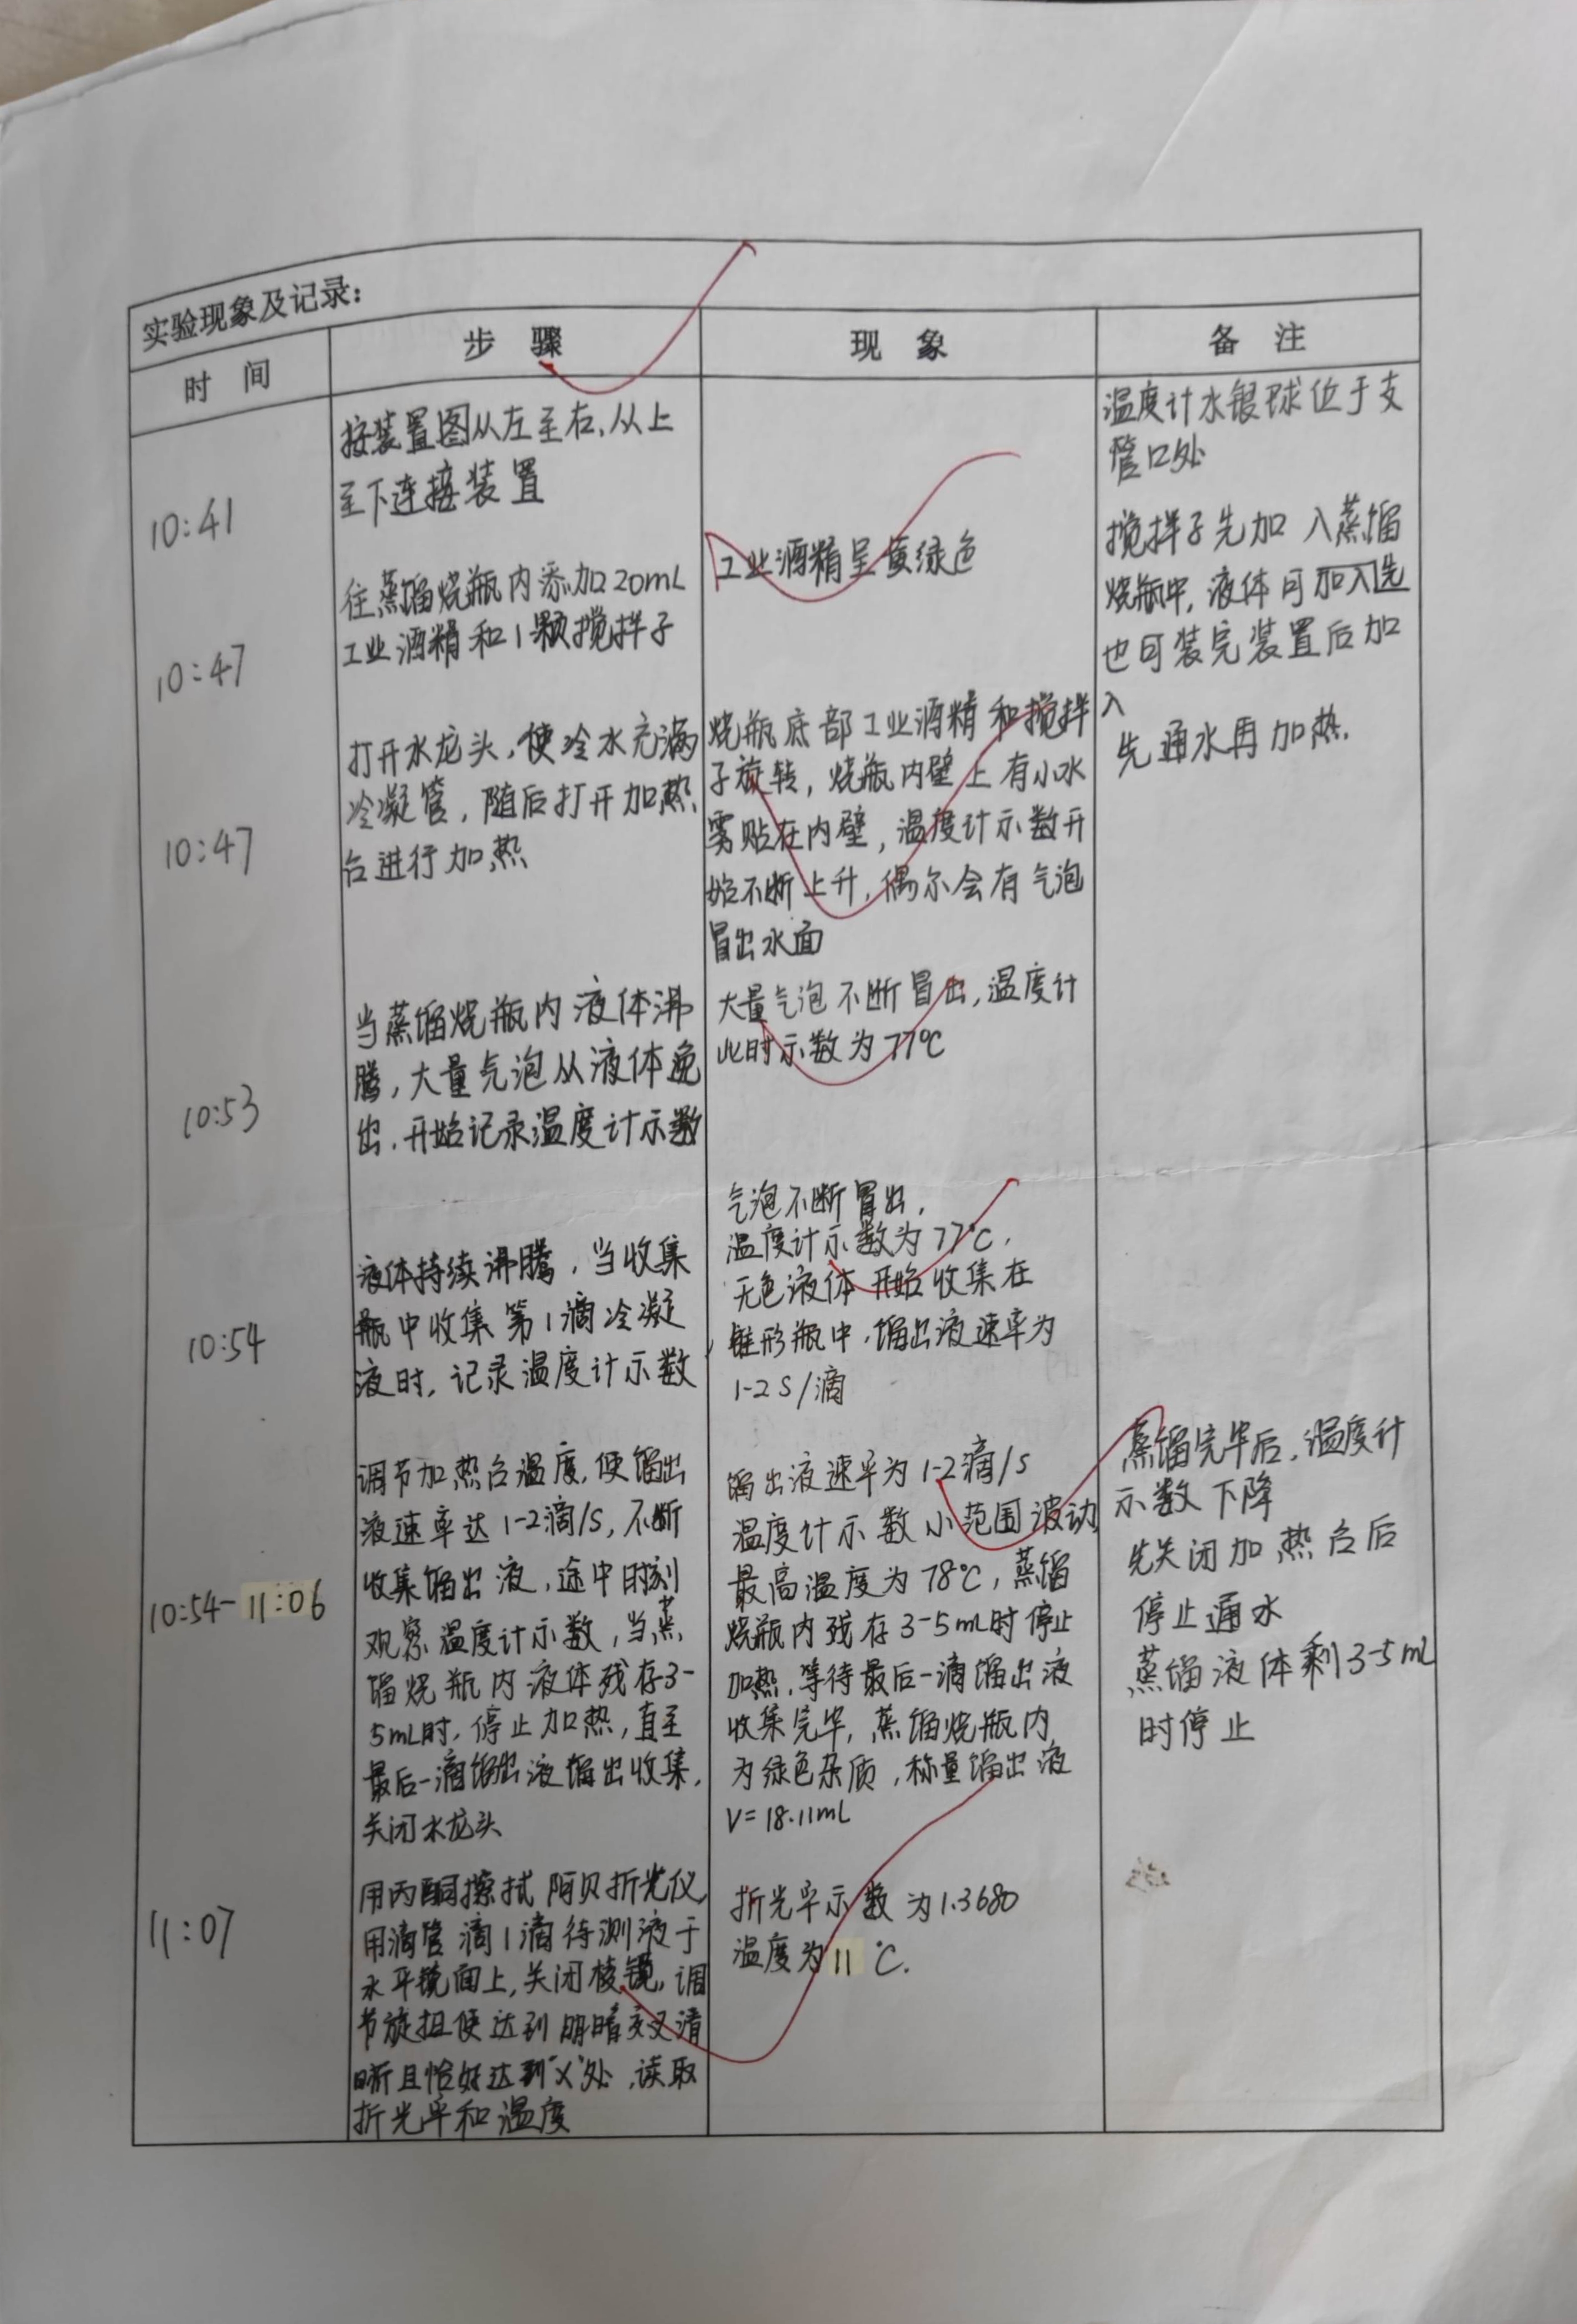 实验现象及记录：
时 间
步 骤
现 象
备 注
10:41
按装置图从左至右,从上
至下连接装置
温度计水银球位于支
管口处
10:47
往蒸馏烧瓶内添加20mL
工业酒精和1颗搅拌子
工业酒精呈黄绿色
搅拌子先加入蒸馏
烧瓶中,液体可加入选
也可装完装置后加
入
10:47
打开水龙头,使冷水充满
冷凝管,随后打开加热
台进行加热
烧瓶底部工业酒精和搅拌
子旋转,烧瓶内壁上有小水
雾贴在内壁,温度计示数开
始不断上升,偶尔会有气泡
冒出水面
先通水再加热.
10:53
当蒸馏烧瓶内液体沸
腾,大量气泡从液体逸
出.开始记录温度计示数
大量气泡不断冒出,温度计
此时示数为77℃
10:54
液体持续沸腾,当收集
瓶中收集第1滴冷凝
液时,记录温度计示数
气泡不断冒出,
温度计示数为77℃,
无色液体开始收集在
锥形瓶中.馏出液速率为
1-2S/滴
10:54-11:06
调节加热台温度,使馏出
液速率达1-2滴/S,不断
收集馏出液,途中时刻
观察温度计示数,当蒸
馏烧瓶内液体残存3-
5mL时,停止加热,直至
最后一滴馏出液馏出收集,
关闭水龙头
馏出液速率为1-2滴/S
温度计示数小范围波动
最高温度为78℃,蒸馏
烧瓶内残存3-5mL时停止
加热.等待最后一滴馏出液
收集完毕,蒸馏烧瓶内
为绿色杂质,称量馏出液
V=18.11mL
蒸馏完毕后,温度计
示数下降
先关闭加热台后
停止通水
蒸馏液体剩3-5mL
时停止
11:07
用丙酮擦拭阿贝折光仪,
用滴管滴1滴待测液于
水平镜面上,关闭棱镜,调
节旋扭使达到明暗交叉清
晰且恰好达到"X"处,读取
折光率和温度
折光率示数为1.3680
温度为11℃.